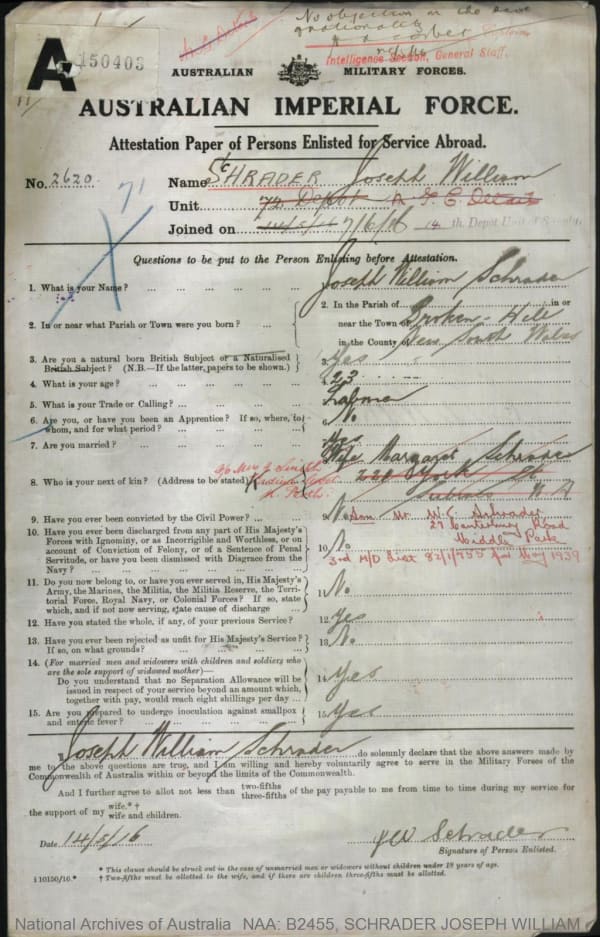 No objection on the score
of nationality
Intelligence Section, General Staff.
A
150403
AUSTRALIAN MILITARY FORCES.
AUSTRALIAN IMPERIAL FORCE.
Attestation Paper of Persons Enlisted for Service Abroad.
No. 2620
71
Name SCHRADER Joseph William
Unit 72 Depot A.G.C. Details
Joined on 14/5/16 7/6/16 14th. Depot Unit of Supply
Questions to be put to the Person Enlisting before Attestation.
1. What is your Name? ... Joseph William Schrader
2. In or near what Parish or Town were you born? ...
2. In the Parish of in or
near the Town of Broken-Hill
in the County of New South Wales
3. Are you a natural born British Subject or a Naturalised
British Subject? (N.B.—If the latter, papers to be shown.)
3. Yes
4. What is your age? ... 4. 23
5. What is your Trade or Calling? ... 5. Labourer
6. Are you, or have you been an Apprentice? If so, where, to
whom, and for what period? ...
6. No
7. Are you married? ... 7. Yes
8. Who is your next of kin? (Address to be stated)
Wife Margaret Schrader
220 York St
Subiaco W.A
Son Mr W.C. Schrader
27 Canterbury Road
Middle Park
3rd M/D List 82/1/755 Apl May 1939
9. Have you ever been convicted by the Civil Power? ... 9. No
10. Have you ever been discharged from any part of His Majesty's
Forces with Ignominy, or as Incorrigible and Worthless, or on
account of Conviction of Felony, or of a Sentence of Penal
Servitude, or have you been dismissed with Disgrace from the
Navy? ...
10. No
11. Do you now belong to, or have you ever served in, His Majesty's
Army, the Marines, the Militia, the Militia Reserve, the Terri-
torial Force, Royal Navy, or Colonial Forces? If so, state
which, and if not now serving, state cause of discharge
11. No
12. Have you stated the whole, if any, of your previous Service?
12. Yes
13. Have you ever been rejected as unfit for His Majesty's Service?
If so, on what grounds? ...
13. No
14. (For married men and widowers with children and soldiers who
are the sole support of widowed mother)—
Do you understand that no Separation Allowance will be
issued in respect of your service beyond an amount which,
together with pay, would reach eight shillings per day ...
14. Yes
15. Are you prepared to undergo inoculation against smallpox
and enteric fever? ...
15. Yes
I, Joseph William Schrader do solemnly declare that the above answers made by
me to the above questions are true, and I am willing and hereby voluntarily agree to serve in the Military Forces of the
Commonwealth of Australia within or beyond the limits of the Commonwealth.
And I further agree to allot not less than two-fifths three-fifths of the pay payable to me from time to time during my service for
the support of my wife.*† wife and children.
Date 14/5/16
J W Schrader
Signature of Person Enlisted.
* This clause should be struck out in the case of unmarried men or widowers without children under 18 years of age.
† Two-fifths must be allotted to the wife, and if there are children three-fifths must be allotted.
‡ 10150/16.*
National Archives of Australia NAA: B2455, SCHRADER JOSEPH WILLIAM